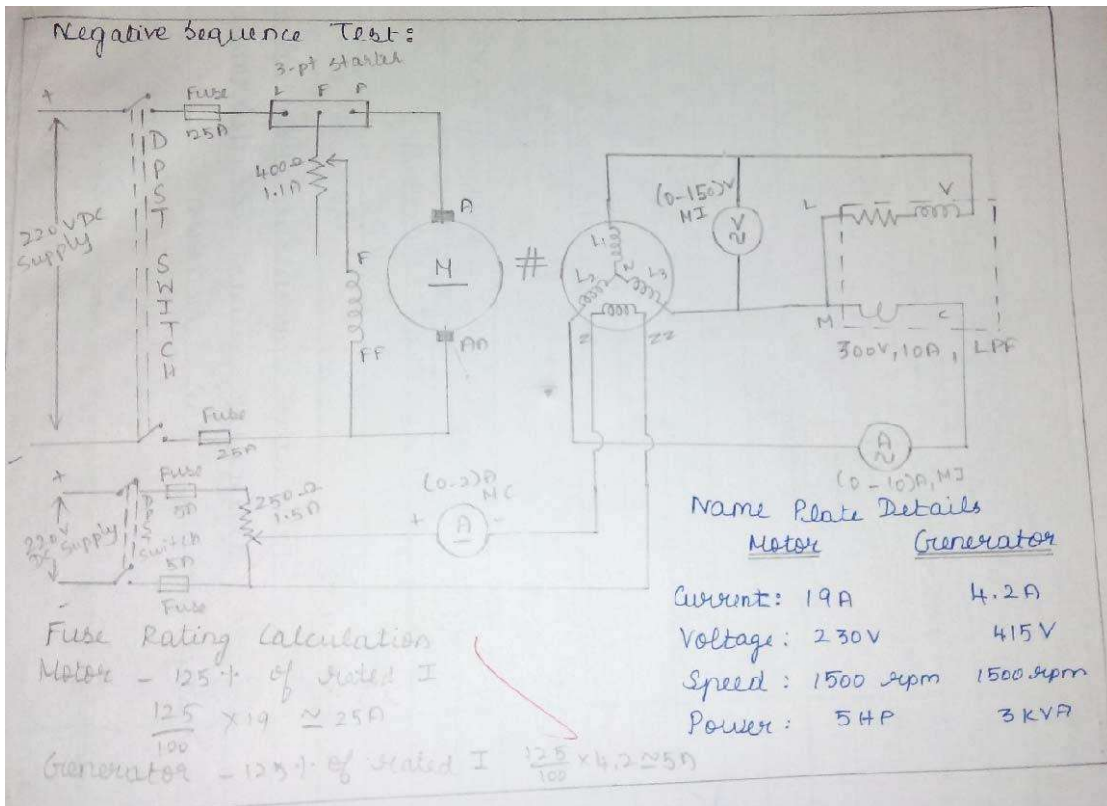 Negative Sequence Test:
3-pt starter
L F A
+
Fuse
25A
DPST SWITCH
220V DC
Supply
400Ω
1.1A
F
FF
A
M
AA
#
L1
L2
L3
N
Z ZZ
(0-150)V
MI
V
~
L V
M C
300V, 10A, LPF
A
~
(0-10)A, MI
-
Fuse
25A
+
Fuse
5A
250Ω
1.5A
(0-2)A
MC
+ A -
220V
DC
Supply
Switch
5A
Fuse
-
Name Plate Details
Motor Generator
Current: 19A 4.2A
Voltage: 230V 415V
Speed: 1500 rpm 1500 rpm
Power: 5HP 3KVA
Fuse Rating Calculation
Motor - 125% of rated I
125/100 × 19 ≃ 25A
Generator - 125% of rated I 125/100 × 4.2 ≃ 5A